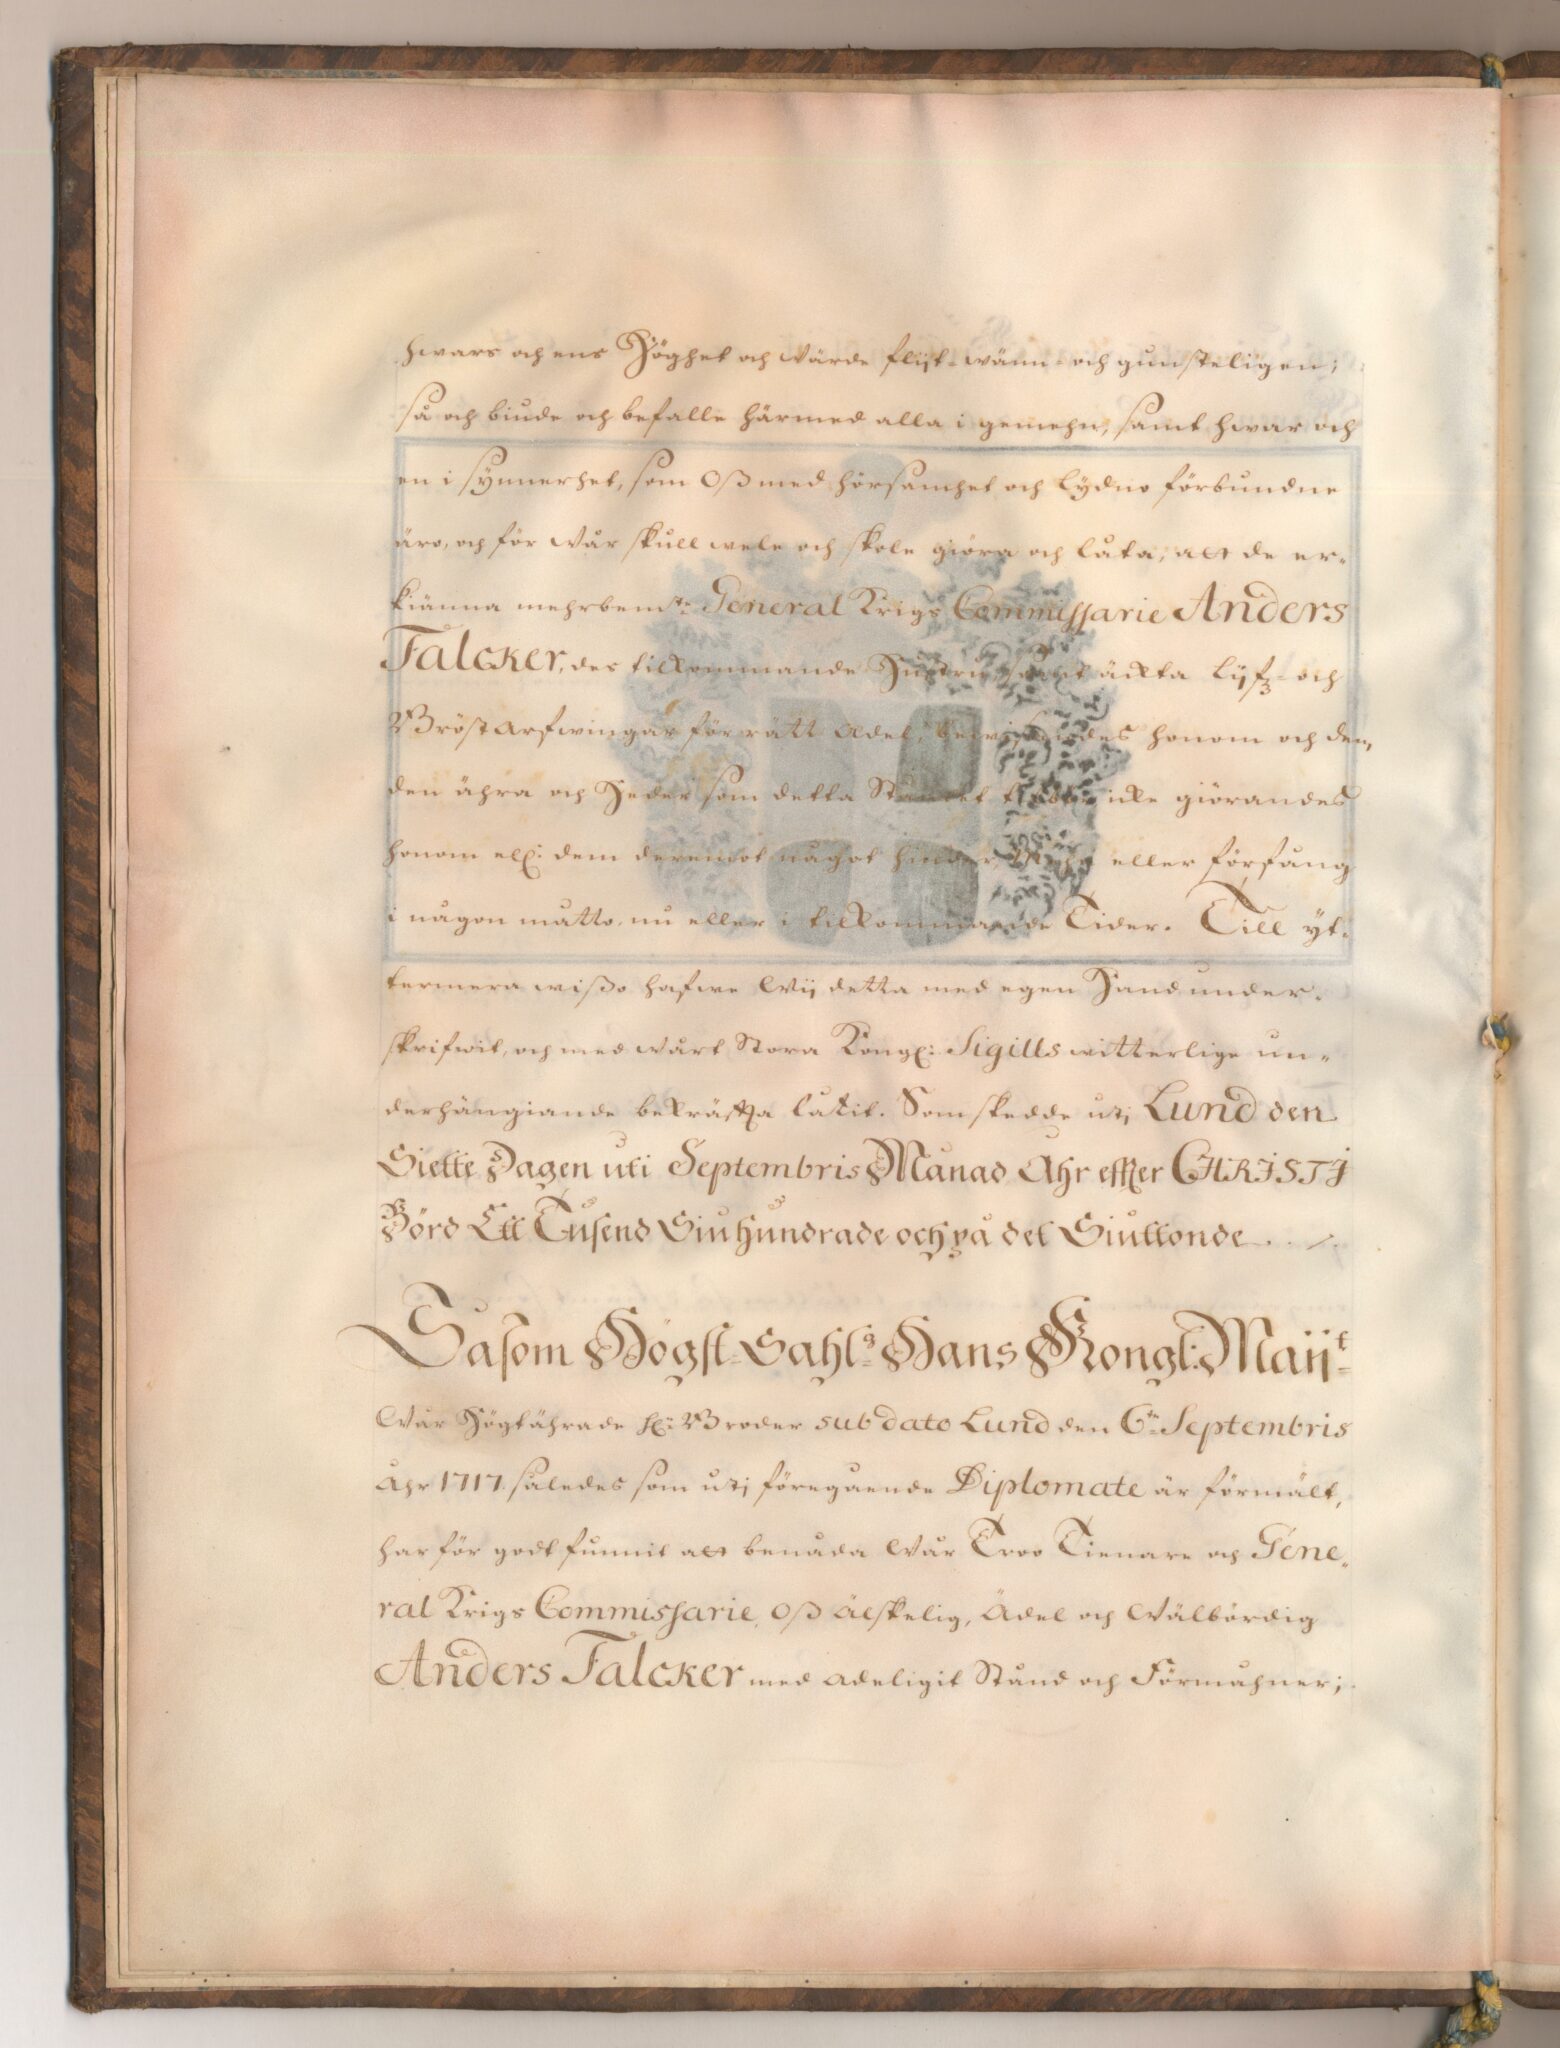 hwars och ens Höghet och wärde flijt- wänn- och gunsteligen;
så och biude och befalle härmed alla i gemehn, samt hwar och
en i synnerhet, som Oß med hörsamhet och lydno förbundne
äro, och för wår skull wele och skole giöra och låta, att de er-
kiänna mehrbemte General Krigs Commissarie Anders
Falcker, des tilkommande Hustru, samt äckta Lijfz- och
Bröst Arfwingar för rätt Adel, bewisandes honom och dem,
den ähra och Heder som detta Ståndet tilstår icke giörandes
honom ell: dem deremot något hinder, eller förfång
i någon måtto, nu eller i tilkommande Tider. Till yt-
termera wißo hafwe Wij detta med egen Hand under-
skrifwit, och med wårt Stora Kongl: Sigills witterlige un-
derhängiande bekräffta låtit. Som skedde uti Lund den
Siette Dagen uti Septembris Månad Åhr effter CHRISTI
Börd Ett Tusend Siuhundrade och på det Siuttonde.
Såsom Högst-Sahlg Hans Kongl: Maijt
Wår Högtährade H: Broder sub dato Lund den 6te Septembris
Åhr 1717. således som uti föregående Diplomate är förmält,
har för godt funnit att benåda Wår Troo Tienare och Gene-
ral Krigs Commissarie, Oß Älskelig, Ädel och Wälbördig
Anders Falcker med adeligit Stånd och Förmåhner;